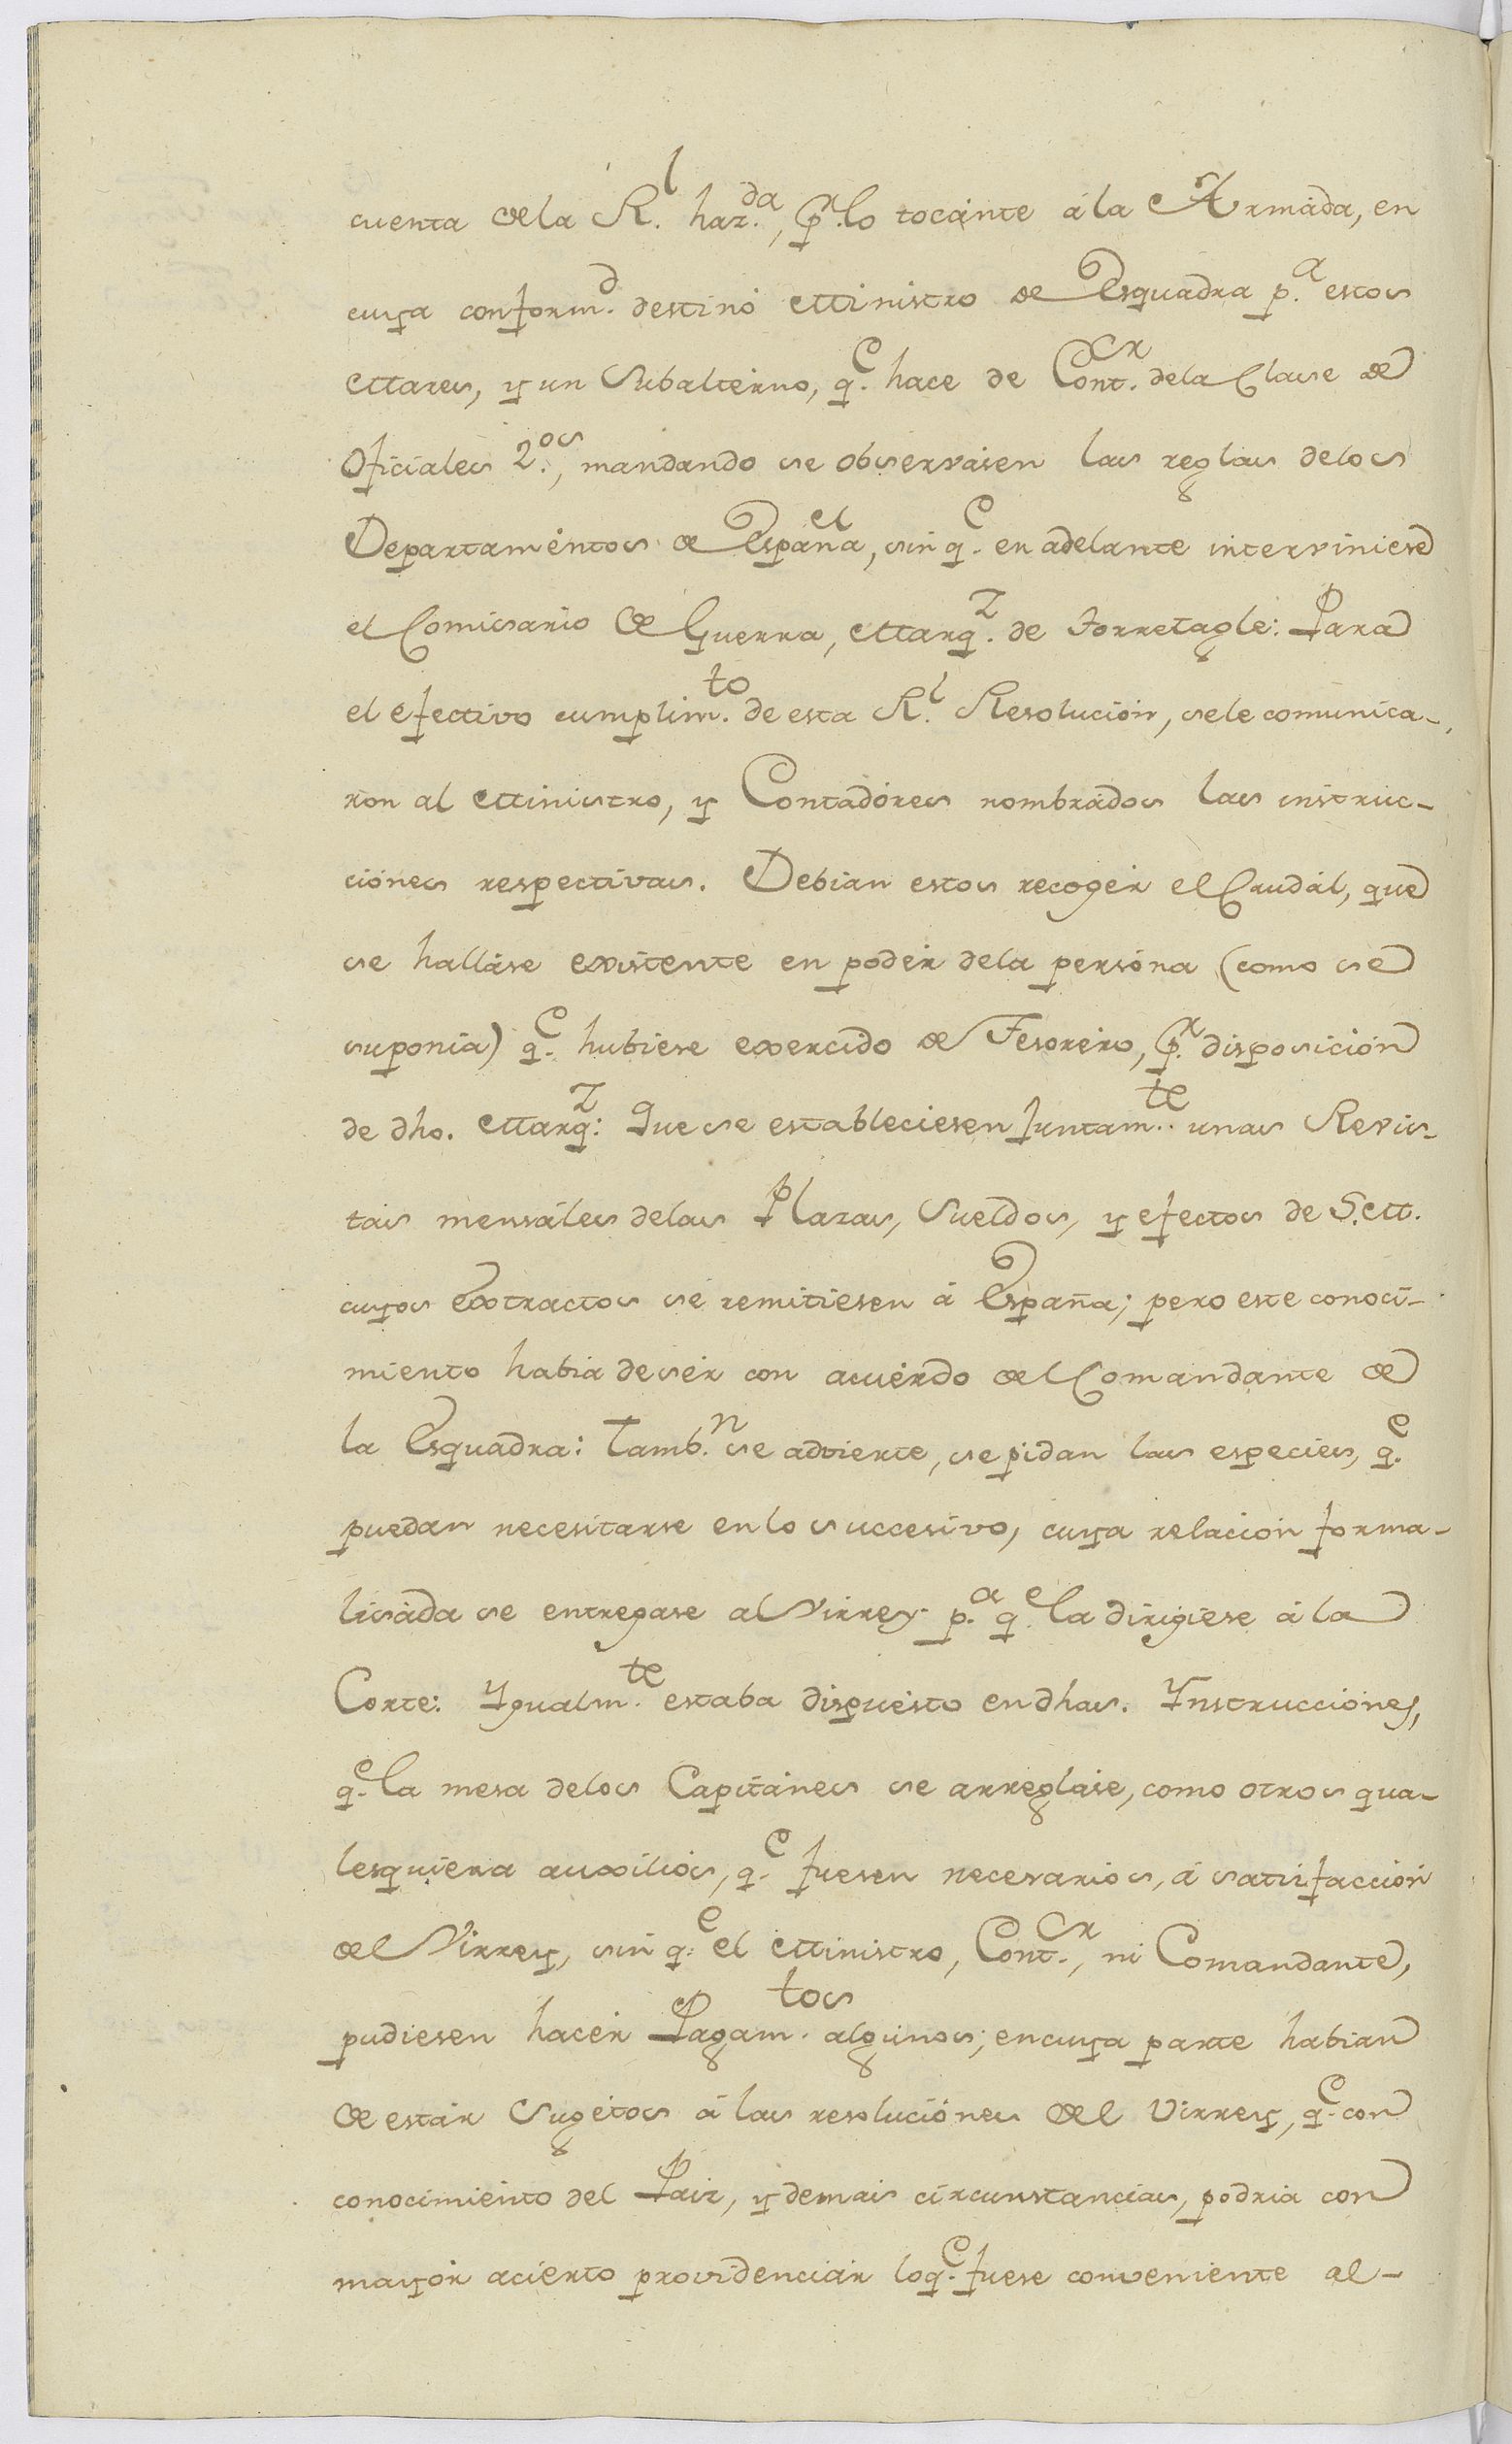 cuenta dela R.l haz.da, p.r lo tocante á la Armada, en
cuya conform.d destinó Ministro de Esquadra p.a estos
Mares, y un Subalterno, q.e hace de Cont.or dela Clase de
Oficiales 2.os, mandando se observasen las reglas delos
Departamentos de España, sin q.e en adelante interviniese
el Comisario de Guerra, Marq.z de Torretagle: Para
el efectivo cumplim.to de esta R.l Resolucion, sele comunica-
ron al Ministro, y Contadores nombrados las instruc-
ciónes respectivas. Debian estos recoger el Caudál, que
se hallase existente en poder dela persona (como se
suponia) q.e hubiese exercido de Tesorero, p.r disposición
de dho. Marq.z: Que se estableciesen juntam.te unas Revis-
tas mensáles delas Plazas, Sueldos, y efectos de S.M.
cuyos Extractos se remitiesen á España; pero este conoci-
miento habia deser con acuerdo del Comandante de
la Esquadra: Tamb.n se advierte, se pidan las especies, q.e
puedan necesitarse enlo succesivo, cuya relacion forma-
lisada se entregase al Virrey p.a q.e la dirigiese á la
Corte: Ygualm.te estaba dispuesto en dhas. Ynstrucciones,
q.e la mesa delos Capitánes se arreglase, como otros qua-
lesquiera auxilios, q.e fuesen necesarios, á satisfacción
del Virrey, sin q.e el Ministro, Cont.or, ni Comandante,
pudiesen hacer Pagam.tos algunos; encuya parte habian
de estár Sugetos á las resoluciónes del Virrey, q.e con
conocimiento del Paiz, y demas circunstancias, podria con
mayór acierto providenciár loq.e fuese conveniente al-